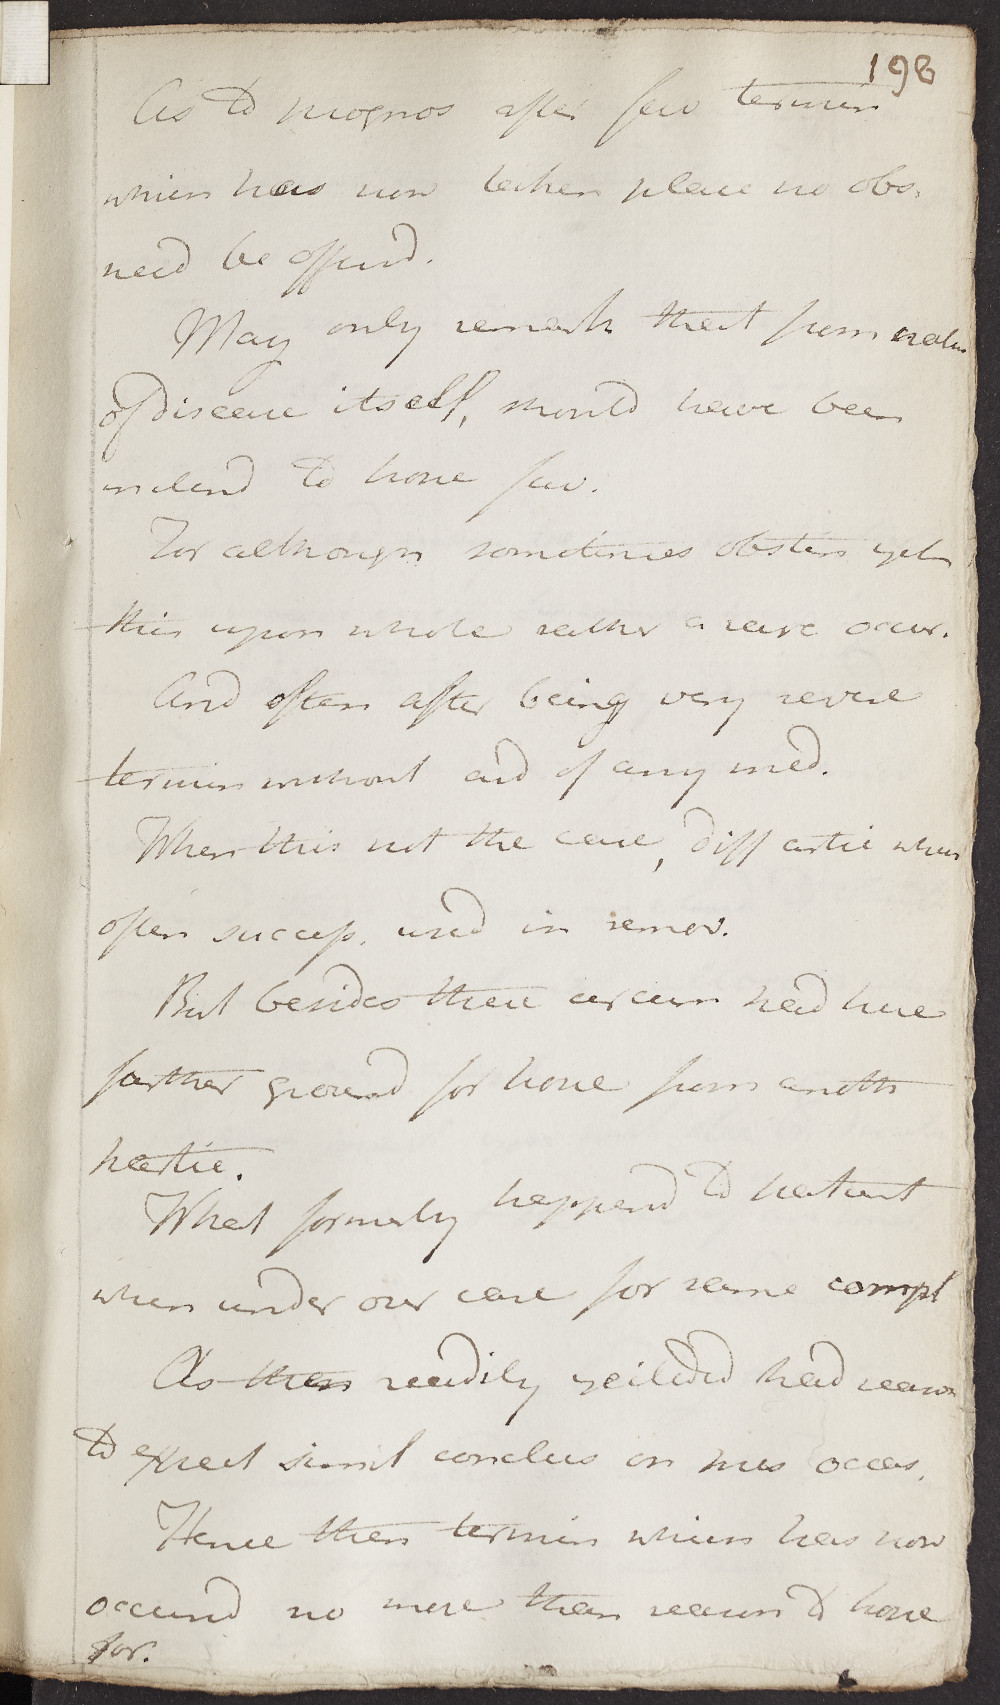 198
As to prognos after fav termin
which has now taken place no obs.
need be offerd.
May only remark that from natur
of disease itself, should have been
inclend to hope fav.
For although sometimes obstin yet
this upon whole rather a rare occur.
And often after being very severe
termin without aid of any med.
When this not the case, diff artic when
often success. used in remov.
But besides these circum had here
farther ground for hope from anoth
partic.
What formerly happend to patient
when under our care for same compl
As then readily yeilded had reason
to expect simil conclus on pres occas.
Hence then termin which has now
occurrd no more than reason to hope
for.